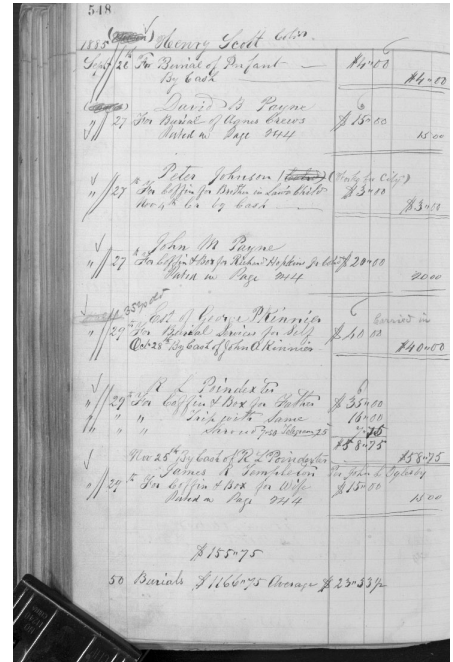 548
1885 Henry Scott Col'd
Sept 26 For Burial of Infant $4"00
By Cash $4"00
David B Payne
" 27 For Burial of Agnes Crews $15"00
Posted in Page 244 15 00
Peter Johnson (Only for City)
" 27 For Coffin for Brother in Law Child $3"00
Nov 4th Cr by Cash $3"00
John M Payne
" 27 For Coffin & Box for Richard Hopkins Jr Col'd $20"00
Posted in Page 244 20 00
Est of George P Kinnier Carried in
" 29th For Burial Services for Self $40 00
Oct 28th By Cash of John A Kinnier $40"00
R L Poindexter
" 29th For Coffin & Box for Father $35"00
" " " Trip with Same 16"00
" " " Shroud 7.50 Telegram 25 7"75
$58"75
Nov 25th By Cash of R L Poindexter $58"75
James R Templeton Per John L
" 29th For Coffin & Box for Wife $15"00
Posted in Page 244 15 00
$155"75
50 Burials $1166"75 Average $23"33½